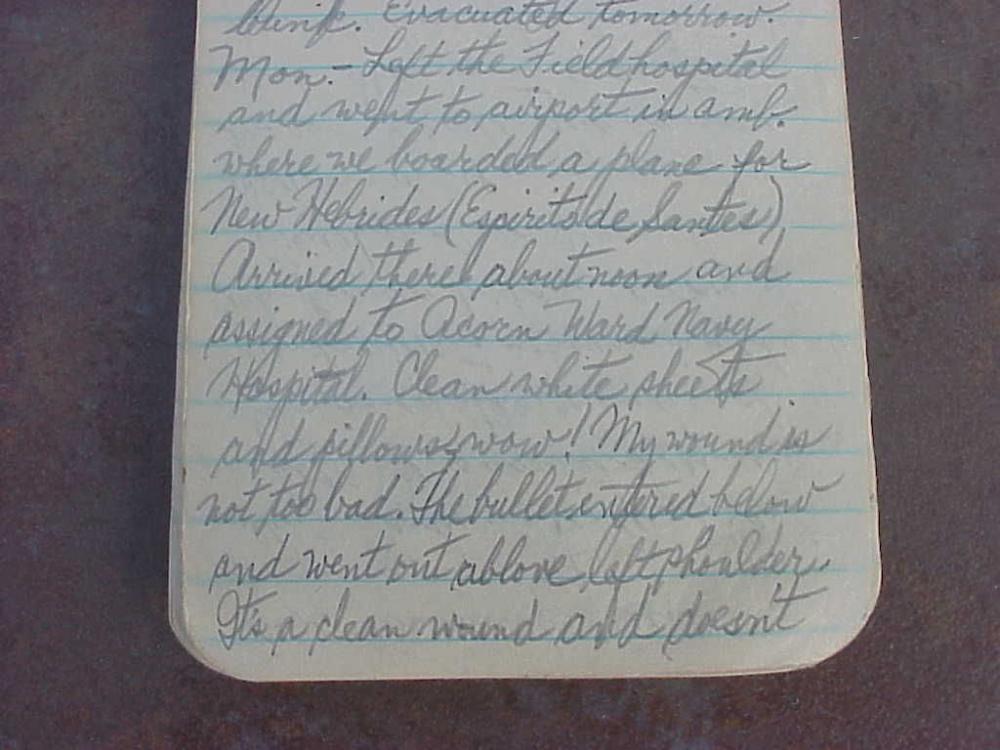 wink. Evacuated tomorrow.
Mon. - Left the Field hospital
and went to airport in amb.
where we boarded a plane for
New Hebrides (Espirito de Santes)
Arrived there about noon and
assigned to Acorn Ward Navy
Hospital. Clean white sheets
and pillows, wow! My wound is
not too bad. The bullet entered below
and went out ablove left shoulder.
It's a clean wound and doesn't